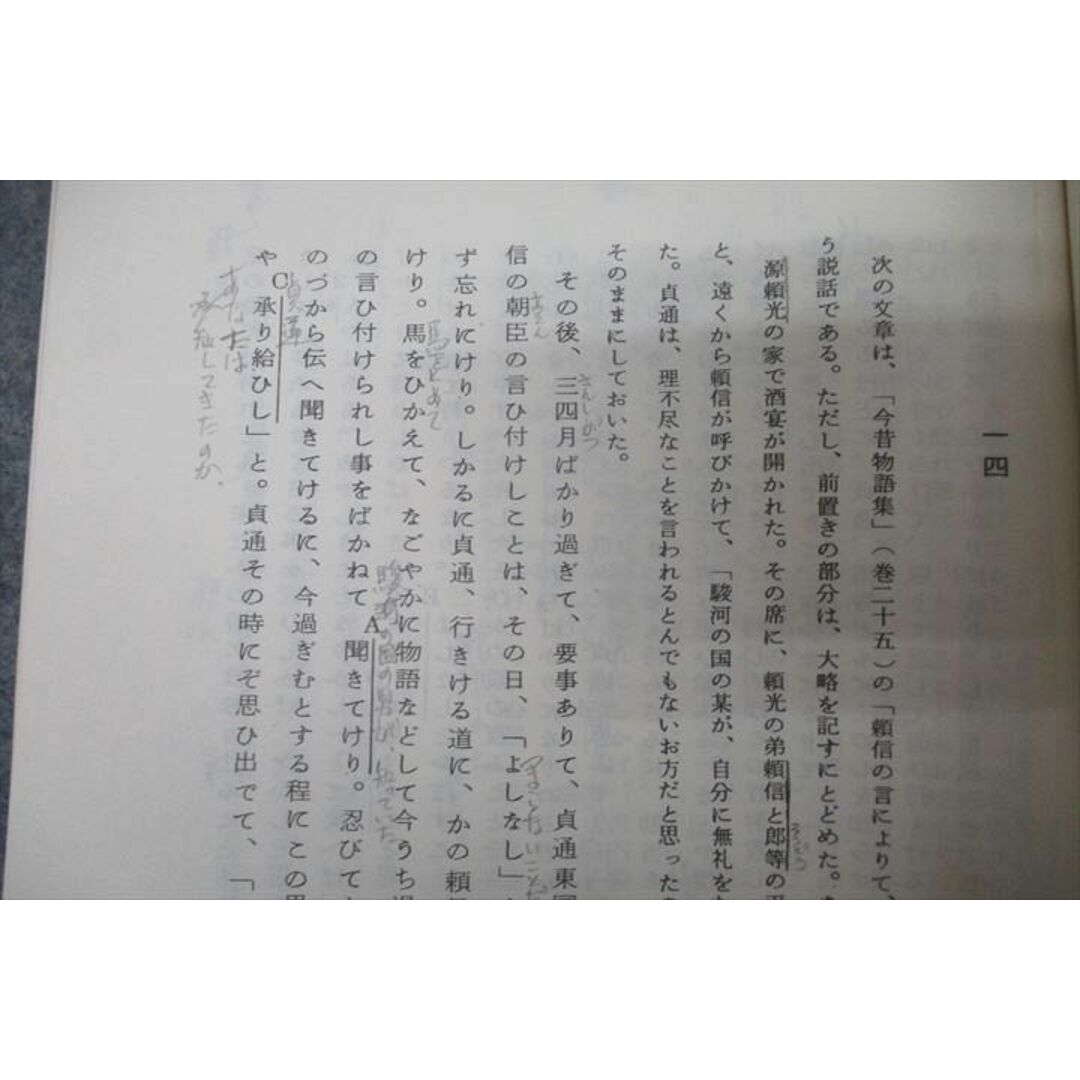 一四
次の文章は、「今昔物語集」（巻二十五）の「頼信の言によりて、
う説話である。ただし、前置きの部分は、大略を記すにとどめた。
源頼光の家で酒宴が開かれた。その席に、頼光の弟頼信と郎等の
ろうどう
と、遠くから頼信が呼びかけて、「駿河の国の某が、自分に無礼を
た。貞通は、理不尽なことを言われるとんでもないお方だと思った
そのままにしておいた。
その後、三四月ばかり過ぎて、要事ありて、貞通東国
さんしがつ
信の朝臣の言ひ付けしことは、その日、「よしなし」
あそん
つまらないことだ
ず忘れにけり。しかるに貞通、行きける道に、かの頼
けり。馬をひかえて、なごやかに物語などして今うち過
馬をとめて
の言ひ付けられし事をばかねてA聞きてけり。忍びて
駿河の国の男が、知っていた
のづから伝へ聞きてけるに、今過ぎむとする程にこの男
やC承り給ひし」と。貞通その時にぞ思ひ出でて、「
貞通
あなたは
承知してきたのか、